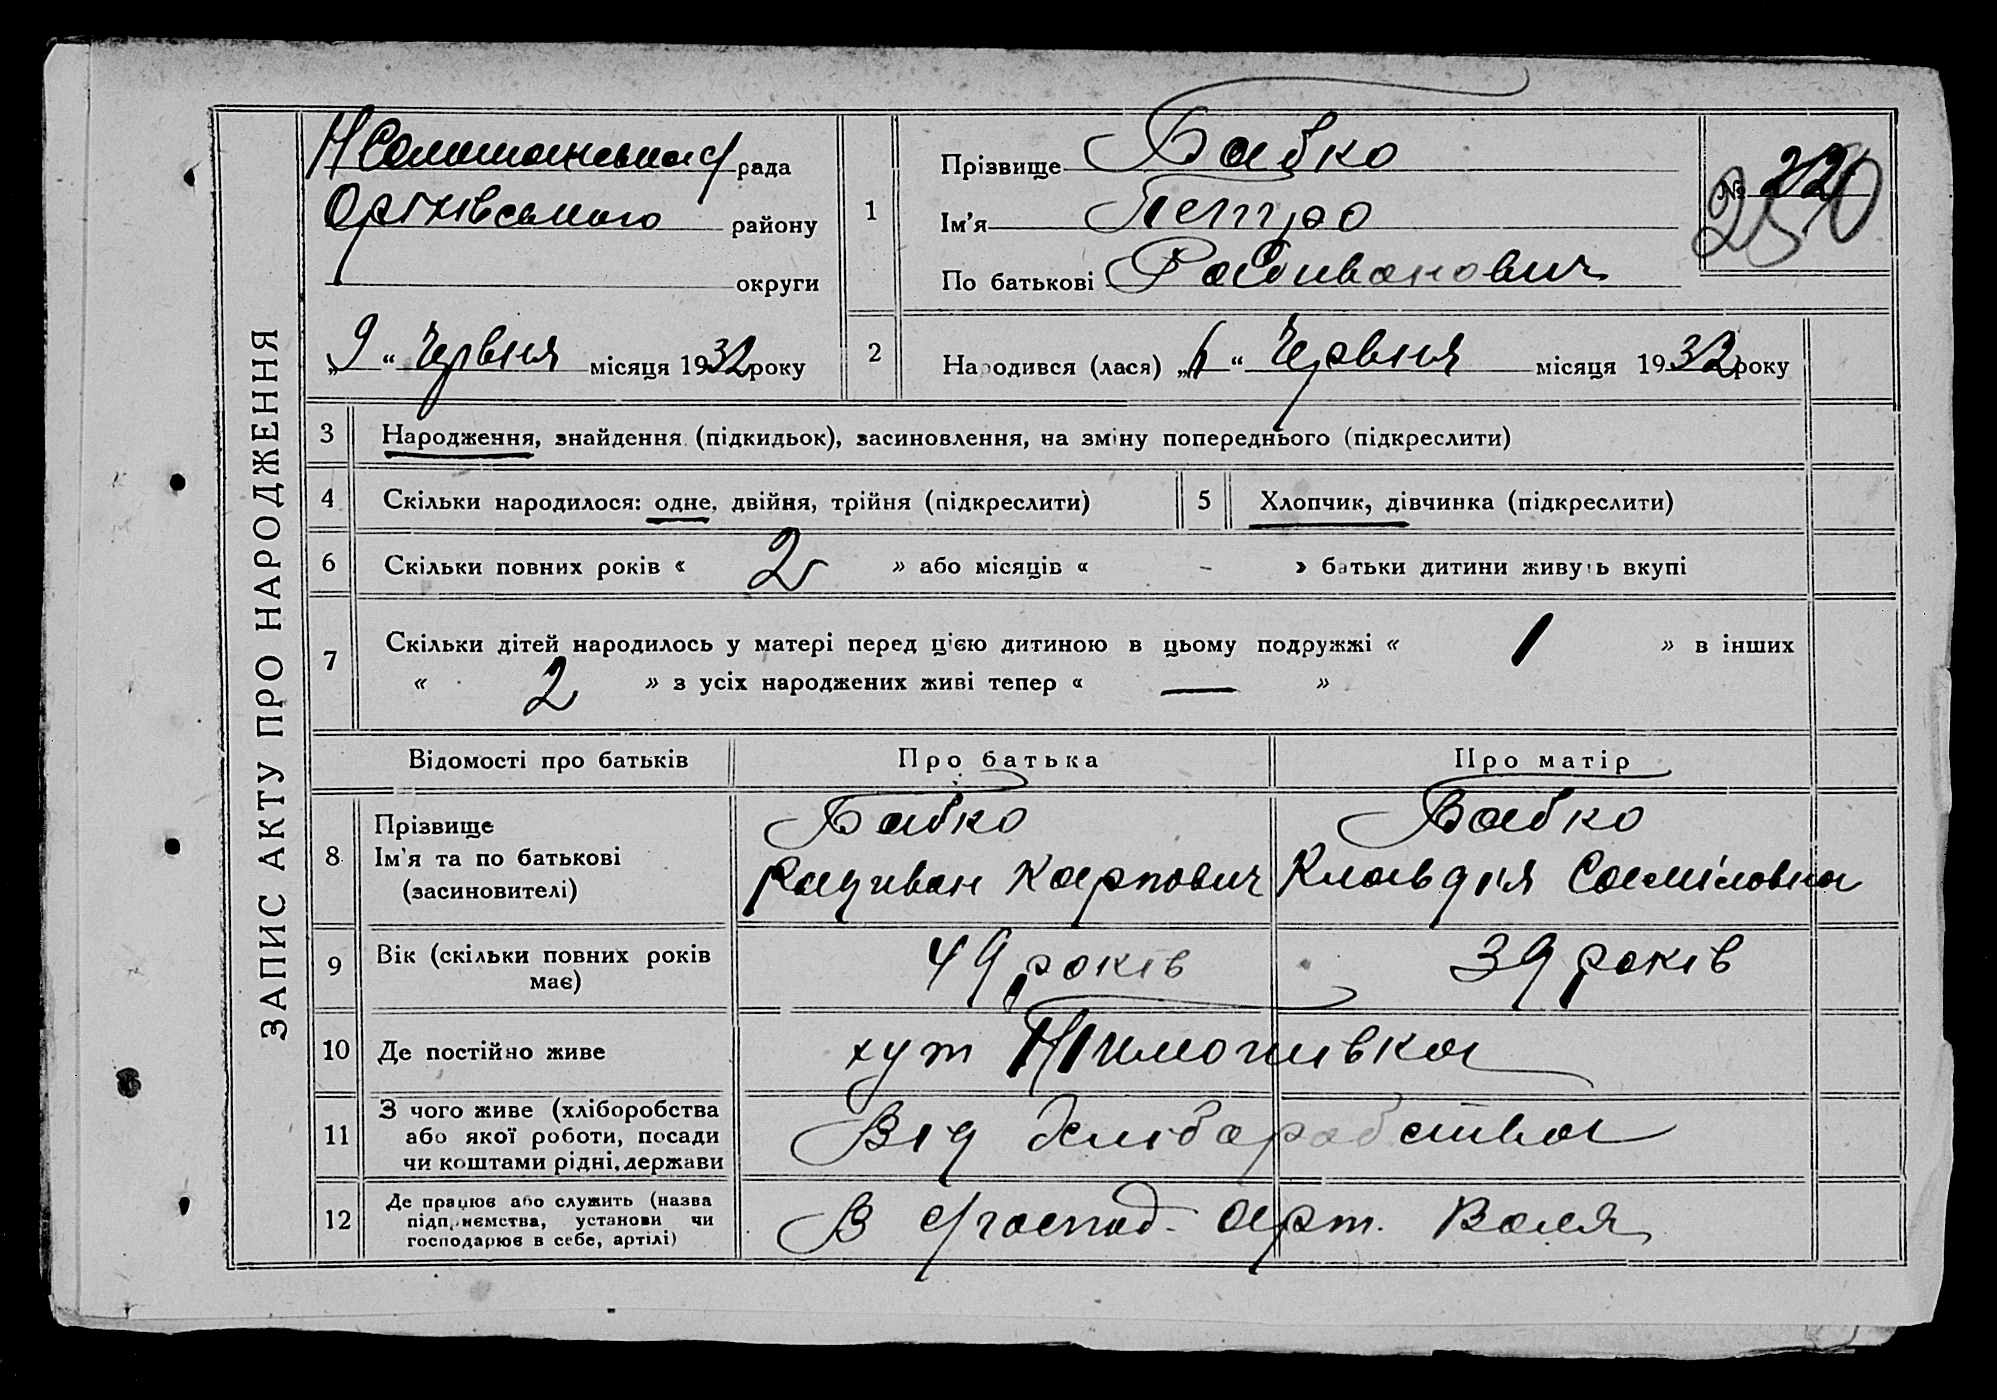 ЗАПИС АКТУ ПРО НАРОДЖЕННЯ
рада
Оріхівського району
округи
„9“ Червня місяця 1932 року
1
Прізвище Бабко
Ім'я Петро
По батькові
№ 22
250
2
Народився (лася) „6“ Червня місяця 1932 року
3 Народження, знайдення (підкидьок), засиновлення, на зміну попереднього (підкреслити)
4 Скільки народилося: одне, двійня, трійня (підкреслити) 5 Хлопчик, дівчинка (підкреслити)
6 Скільки повних років « 2 » або місяців « - » батьки дитини живуть вкупі
7 Скільки дітей народилось у матері перед цією дитиною в цьому подружжі « 1 » в інших
« 2 » з усіх народжених живі тепер « — »
Відомості про батьків Про батька Про матір
8 Прізвище Бабко Бабко
Ім'я та по батькові Карпович Клавдія Саміловна
(засиновителі)
9 Вік (скільки повних років має) 49 років 39 років
10 Де постійно живе хут
11 З чого живе (хліборобства або якої роботи, посади чи коштами рідні, держави Від хліборобства
12 Де працює або служить (назва підприємства, установи чи господарює в себе, артілі) В с/господ. арт. Воля